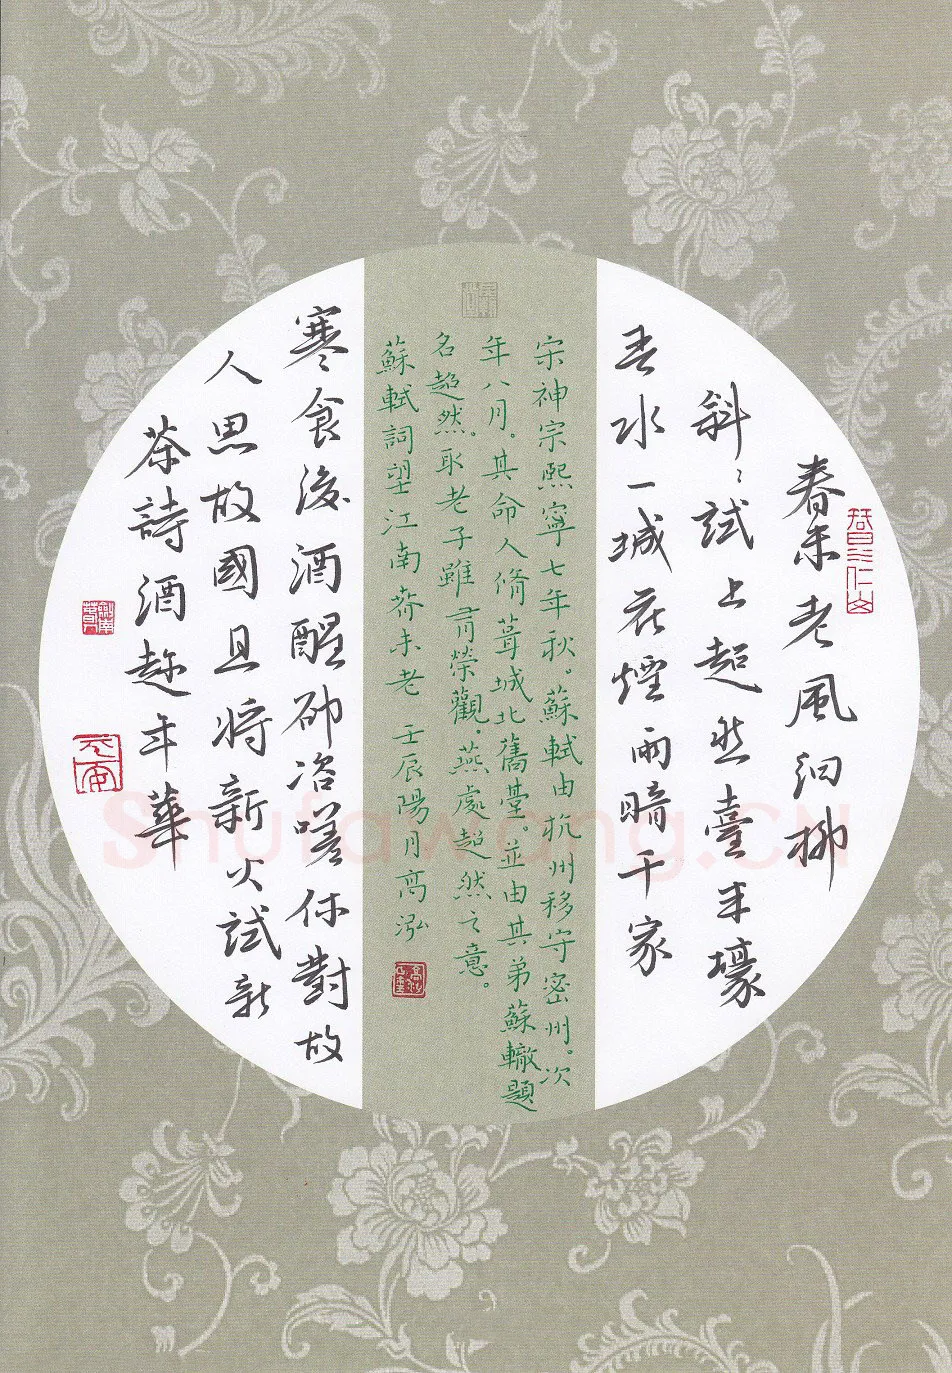 春未老風細柳
斜〻試上超然臺半壕
春水一城花煙雨暗千家
宋神宗熙寧七年秋。蘇軾由杭州移守密州。次
年八月。其命人脩葺城北舊臺。並由其弟蘇轍題
名超然。取老子雖有榮觀。燕處超然之意。
蘇軾詞望江南春未老 壬辰陽月高泓
寒食後酒醒卻咨嗟休對故
人思故國且將新火試新
茶詩酒趁年華
Shufawang.CN